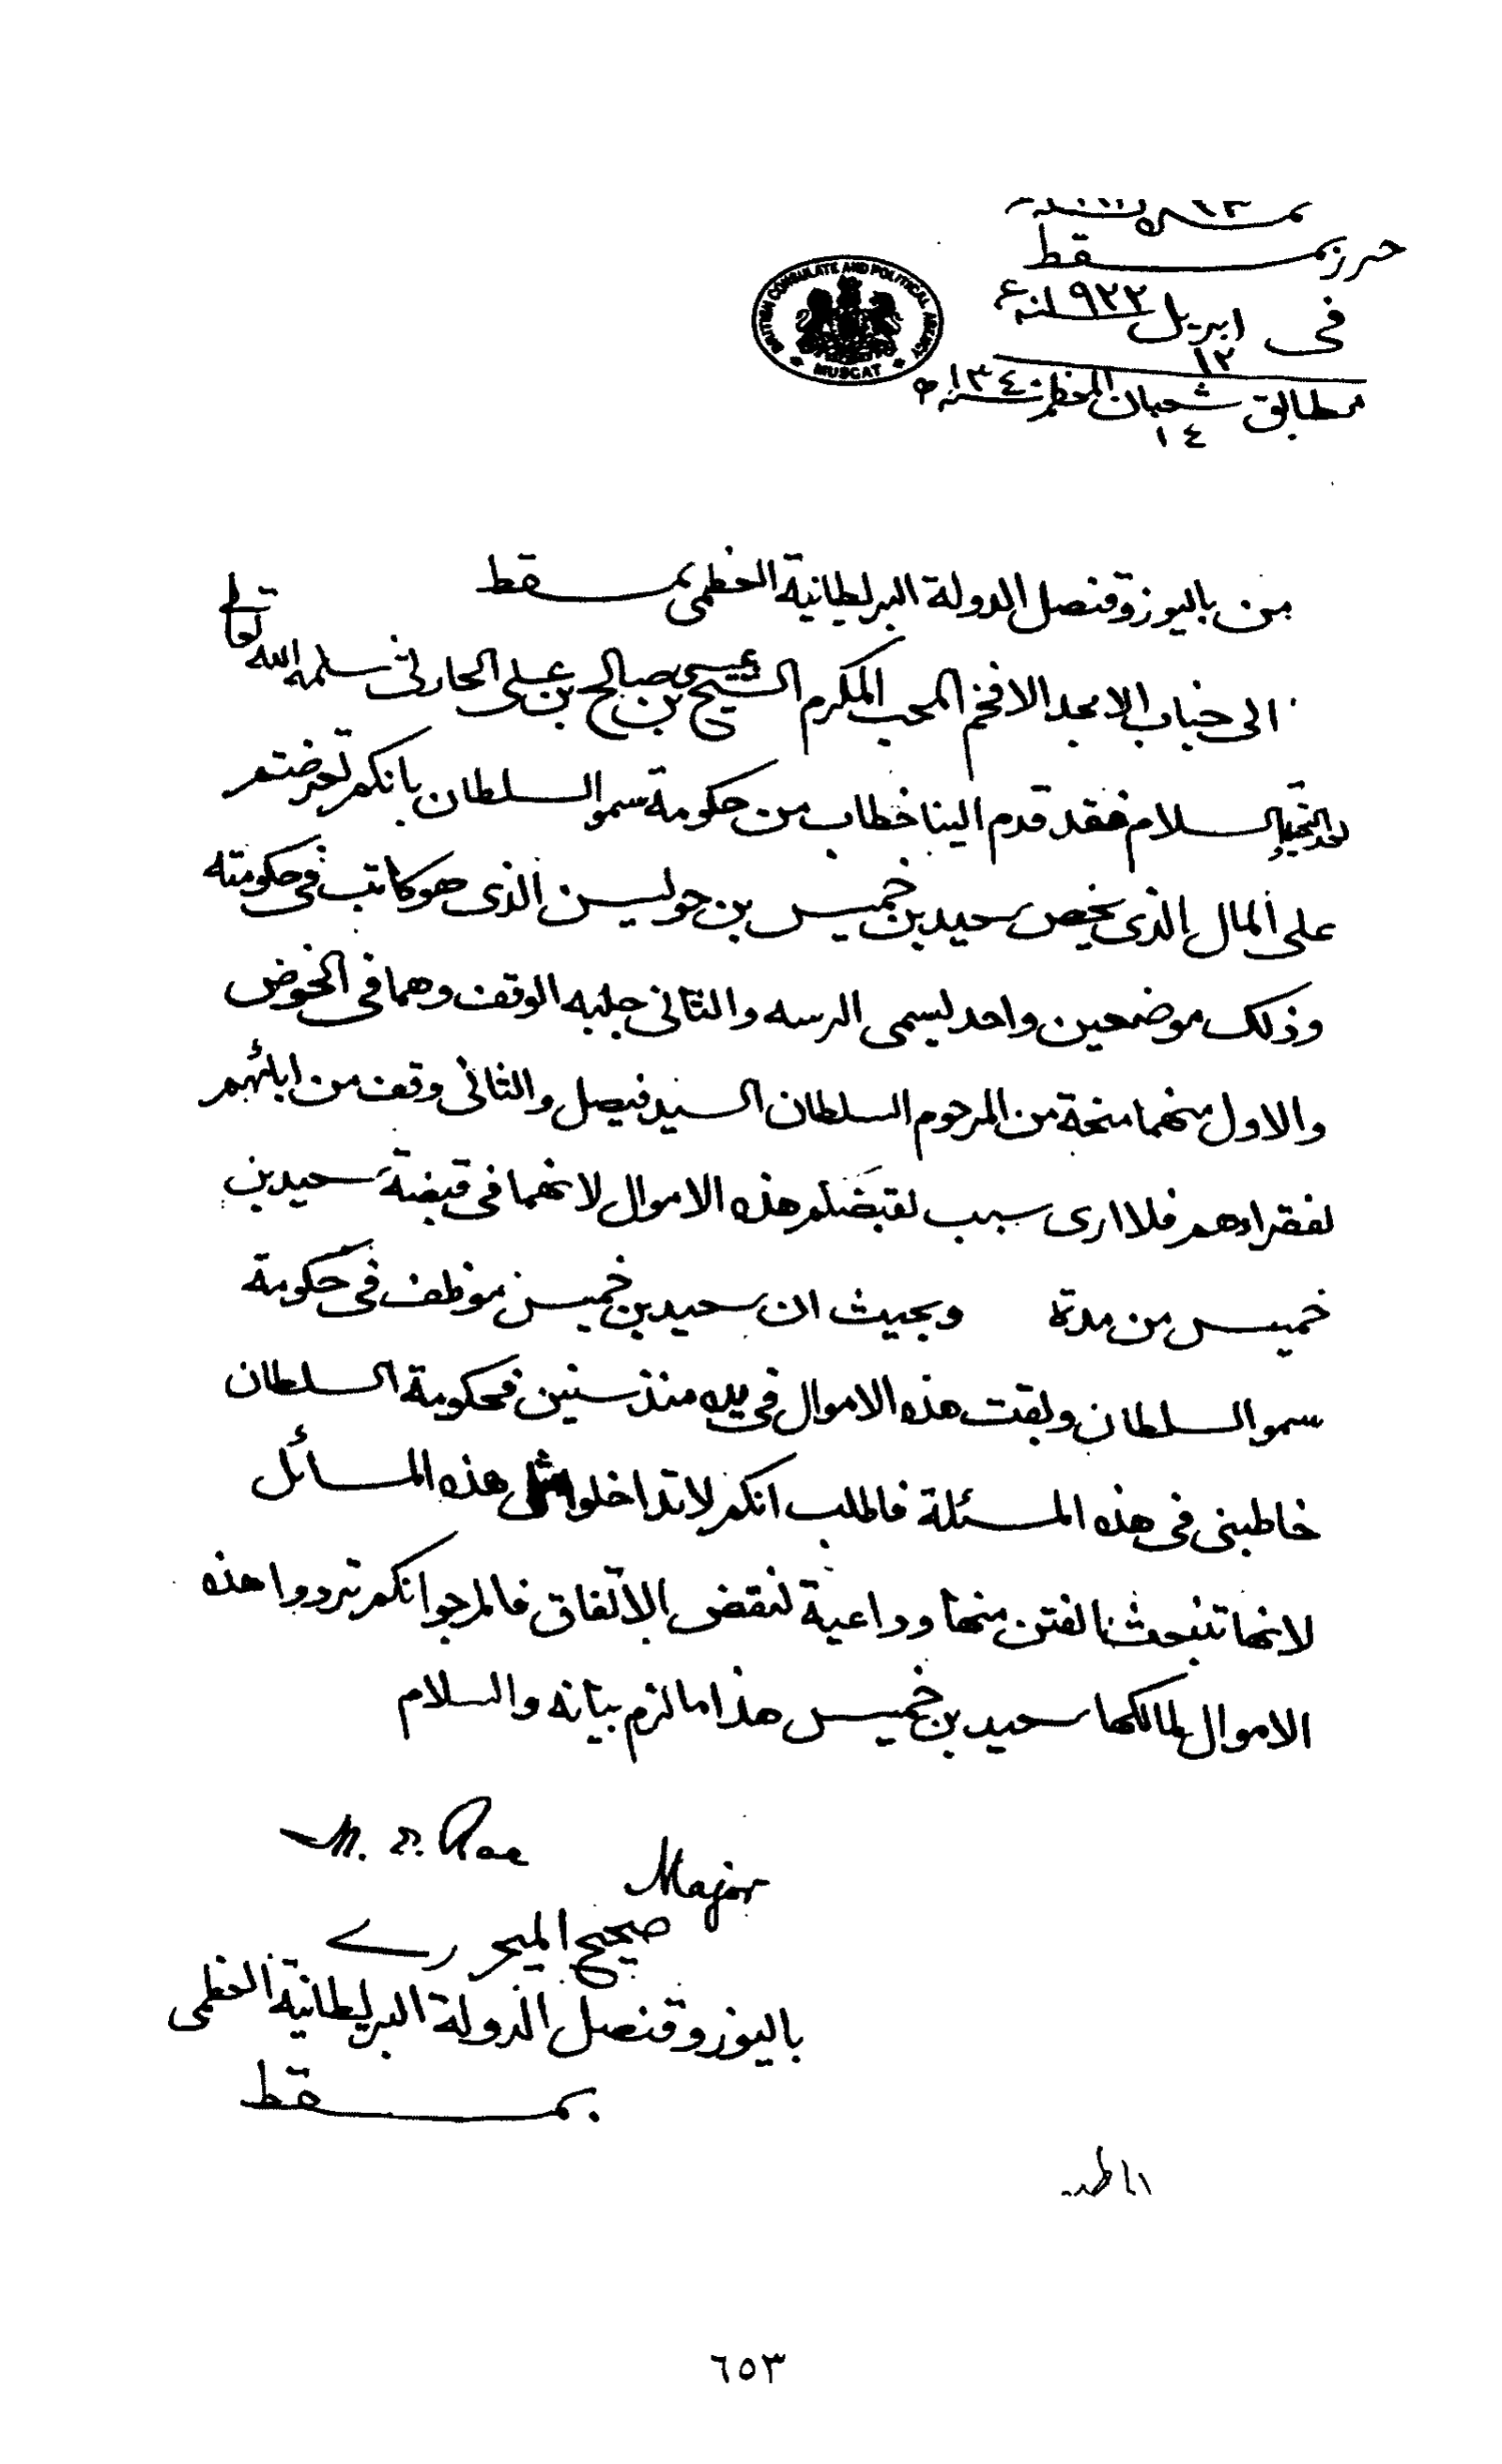 حرر بمسقط
في ابريل ١٩٢٢ سنه ع
١٢
مطابق شعبان المعظم سنه ١٣٤٠ ه
١٤
BRITISH CONSULATE AND POLITICAL AGENCY
MUSCAT
من باليوز وقنصل الدولة البرلطانية العظمى بمسقط
الى جناب الامجد الافخم المحب المكرم الشيخ عيسى بن صالح بن علي الحارثي سلمه الله تعالى
بعد التحية والسلام فقد قدم الينا خطاب من حكومة سمو السلطان بانكم تعرضتم
على المال الذى يخص سعيد بن خميس بن حوليسن الذى هو كاتب في حكومته
وذلك موضعين واحد يسمى الرسه والثاني جلبه الوقف وهما في الخوض
والاول منهما منحة من المرحوم السلطان السيد فيصل والثاني وقف من ابائهم
لفقراءهم فلا ارى سبب لقبضكم هذه الاموال لانهما في قبضة سعيد بن
خميس من مدة وبحيث ان سعيد بن خميس موظف في حكومة
سمو السلطان وبقت هذه الاموال في يده منذ سنين فحكومة السلطان
خاطبني في هذه المسئلة فاطلب انكم لا تداخلوا مثل هذه المسائل
لانها تنبعث الفتن منها وداعية لنقض الاتفاق فالمرجوا انكم تردوا هذه
الاموال لمالكها سعيد بن خميس هذا ما لزم بيانه والسلام
M. E. Rae Major
صحيح الميجر رے
باليوز وقنصل الدولة البرلطانية العظمى
بمسقط
٦٥٣